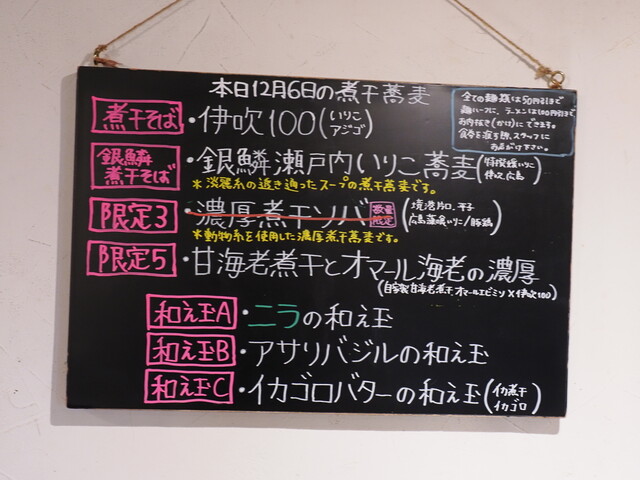 本日12月6日の煮干蕎麦
全ての麺類は50円引まで
お肉抜き(かけ)にできます。
食券を渡す際、スタッフに
お声がけ下さい。
煮干そば ・伊吹100(いりこ アジゴ)
銀鱗煮干そば ・銀鱗瀬戸内いりこ蕎麦(特撰銀いりこ 伊吹、広島)
＊淡麗系の透き通ったスープの煮干蕎麦です。
限定3 ・濃厚煮干ソバ 数量限定 (境港片口、平子
＊動物系を使用した濃厚煮干蕎麦です。
限定5 ・甘海老煮干とオマール海老の濃厚
(自家製甘海老煮干、オマールエビミソ×伊吹100)
和え玉A ・ニラの和え玉
和え玉B ・アサリバジルの和え玉
和え玉C ・イカゴロバターの和え玉(イカ煮干 イカゴロ)